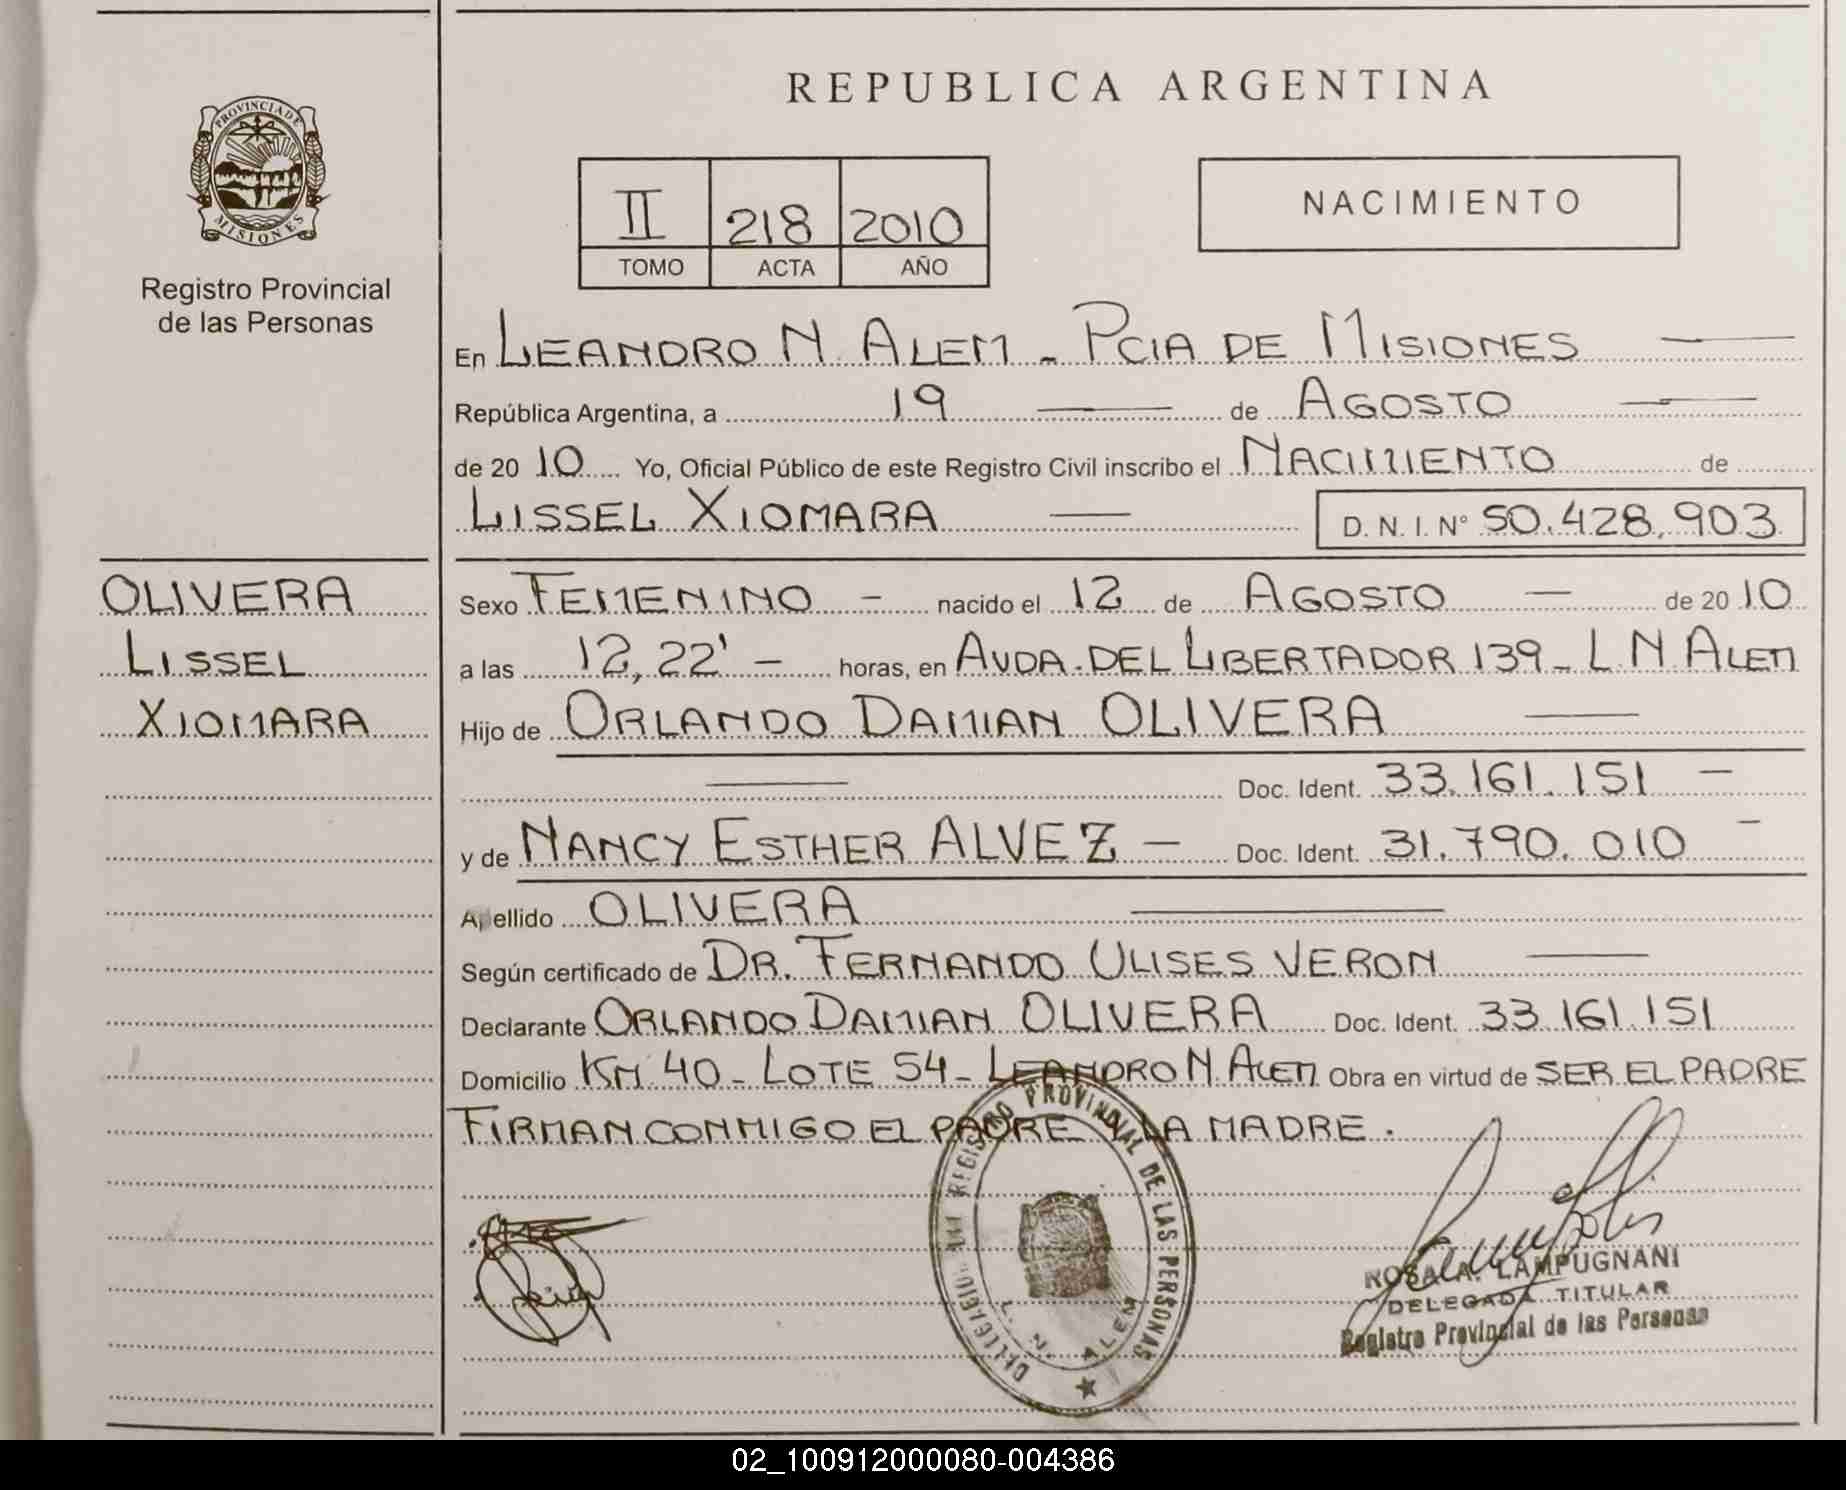 REPUBLICA ARGENTINA
PROVINCIA DE MISIONES
Registro Provincial
de las Personas
II 218 2010
TOMO ACTA AÑO
NACIMIENTO
En LEANDRO N ALEM - PCIA DE MISIONES
República Argentina, a 19 de AGOSTO
de 20 10 Yo, Oficial Público de este Registro Civil inscribo el NACIMIENTO de
LISSEL XIOMARA — D. N. I. N° 50.428.903
OLIVERA
LISSEL
XIOMARA
Sexo FEMENINO - nacido el 12 de AGOSTO — de 20 10
a las 12,22' - horas, en AVDA. DEL LIBERTADOR 139 - L N ALEM
Hijo de ORLANDO DAMIAN OLIVERA —
— Doc. Ident. 33.161.151 -
y de NANCY ESTHER ALVEZ - Doc. Ident. 31.790.010 -
Apellido OLIVERA —
Según certificado de DR. FERNANDO ULISES VERON —
Declarante ORLANDO DAMIAN OLIVERA Doc. Ident. 33.161.151
Domicilio KM 40 - LOTE 54 - LEANDRO N ALEM Obra en virtud de SER EL PADRE
FIRMAN CONMIGO EL PADRE Y LA MADRE.
REGISTRO PROVINCIAL DE LAS PERSONAS
L. N. ALEM
ROSA A. LAMPUGNANI
DELEGADA TITULAR
Registro Provincial de las Personas
02_100912000080-004386